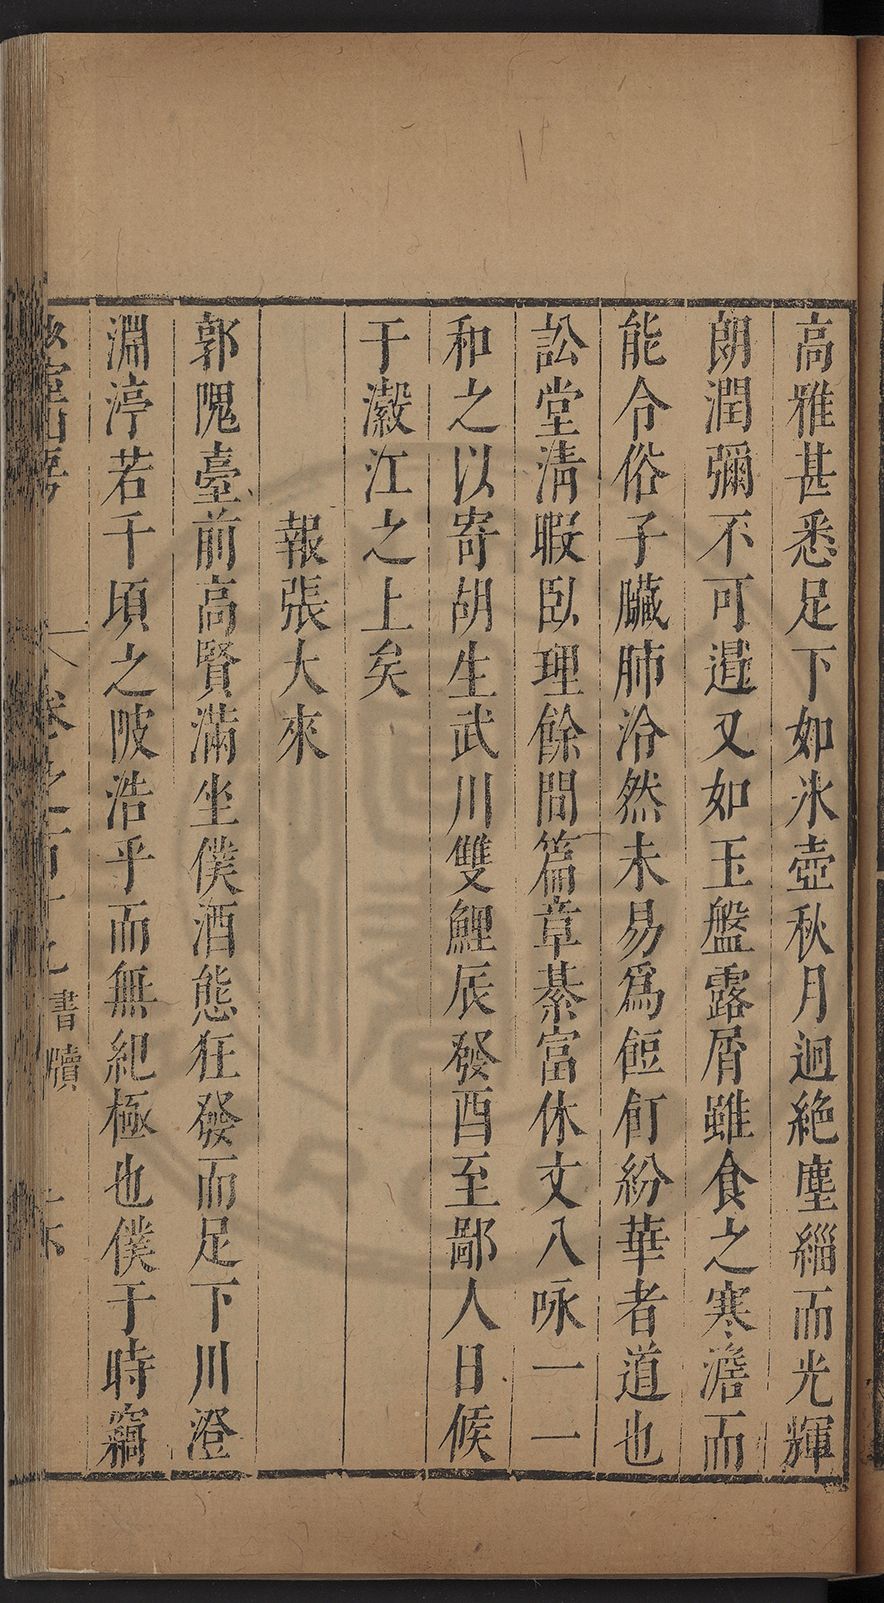 高雅甚悉足下如氷壺秋月迥絶塵緇而光輝
朗潤彌不可遏又如玉盤露屑雖食之寒澹而
能令俗子臟肺泠然未易爲餖飣紛華者道也
訟堂清暇臥理餘間篇章綦富休文八咏一一
和之以寄胡生武川雙鯉辰發酉至鄙人日候
于瀫江之上矣
報張大來
郭隗臺前高賢滿坐僕酒態狂發而足下川澄
淵渟若千頃之陂浩乎而無紀極也僕于時竊
卷之百十七 書牘